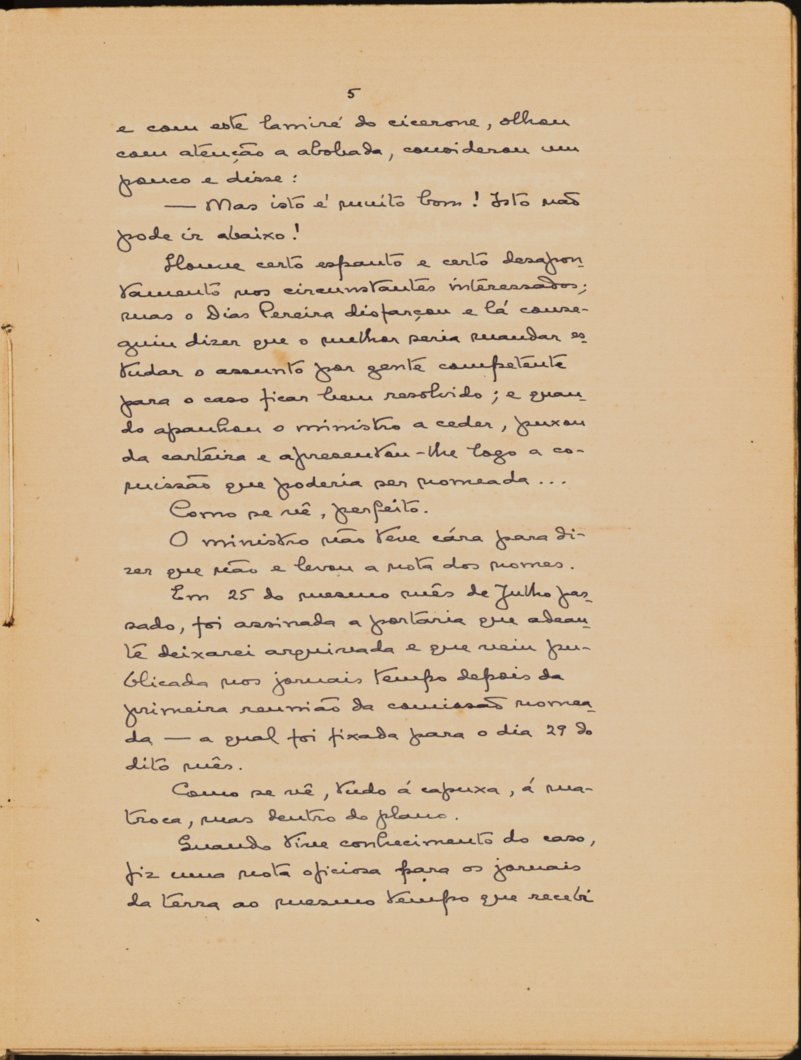 5
e com este lamiré do cicerone, olhou
com atenção a abobada, considerou um
pouco e disse:
— Mas isto é muito bom! Isto não
pode ir abaixo!
Houve certo espanto e certo desapon-
tamento nos circunstantes interessados;
mas o Dias Pereira disfarçou e lá conse-
guiu dizer que o melhor seria mandar es-
tudar o assunto por gente competente
para o caso ficar bem resolvido; e quan-
do apanhou o ministro a ceder, puxou
da carteira e apresentou-lhe logo a co-
missão que poderia ser nomeada...
Como se vê, perfeito.
O ministro não teve cára para di-
zer que não e levou a nota dos nomes.
Em 25 do mesmo mês de Julho pas-
sado, foi assinada a portaria que adean-
te deixarei arquivada e que veiu pu-
blicada nos jornais tempo depois da
primeira reunião da comissão nomea-
da — a qual foi fixada para o dia 29 do
dito mês.
Como se vê, tudo á capuxa, á ma-
troca, mas dentro do plano.
Quando tive conhecimento do caso,
fiz uma nota oficiosa para os jornais
da terra ao mesmo tempo que recebi